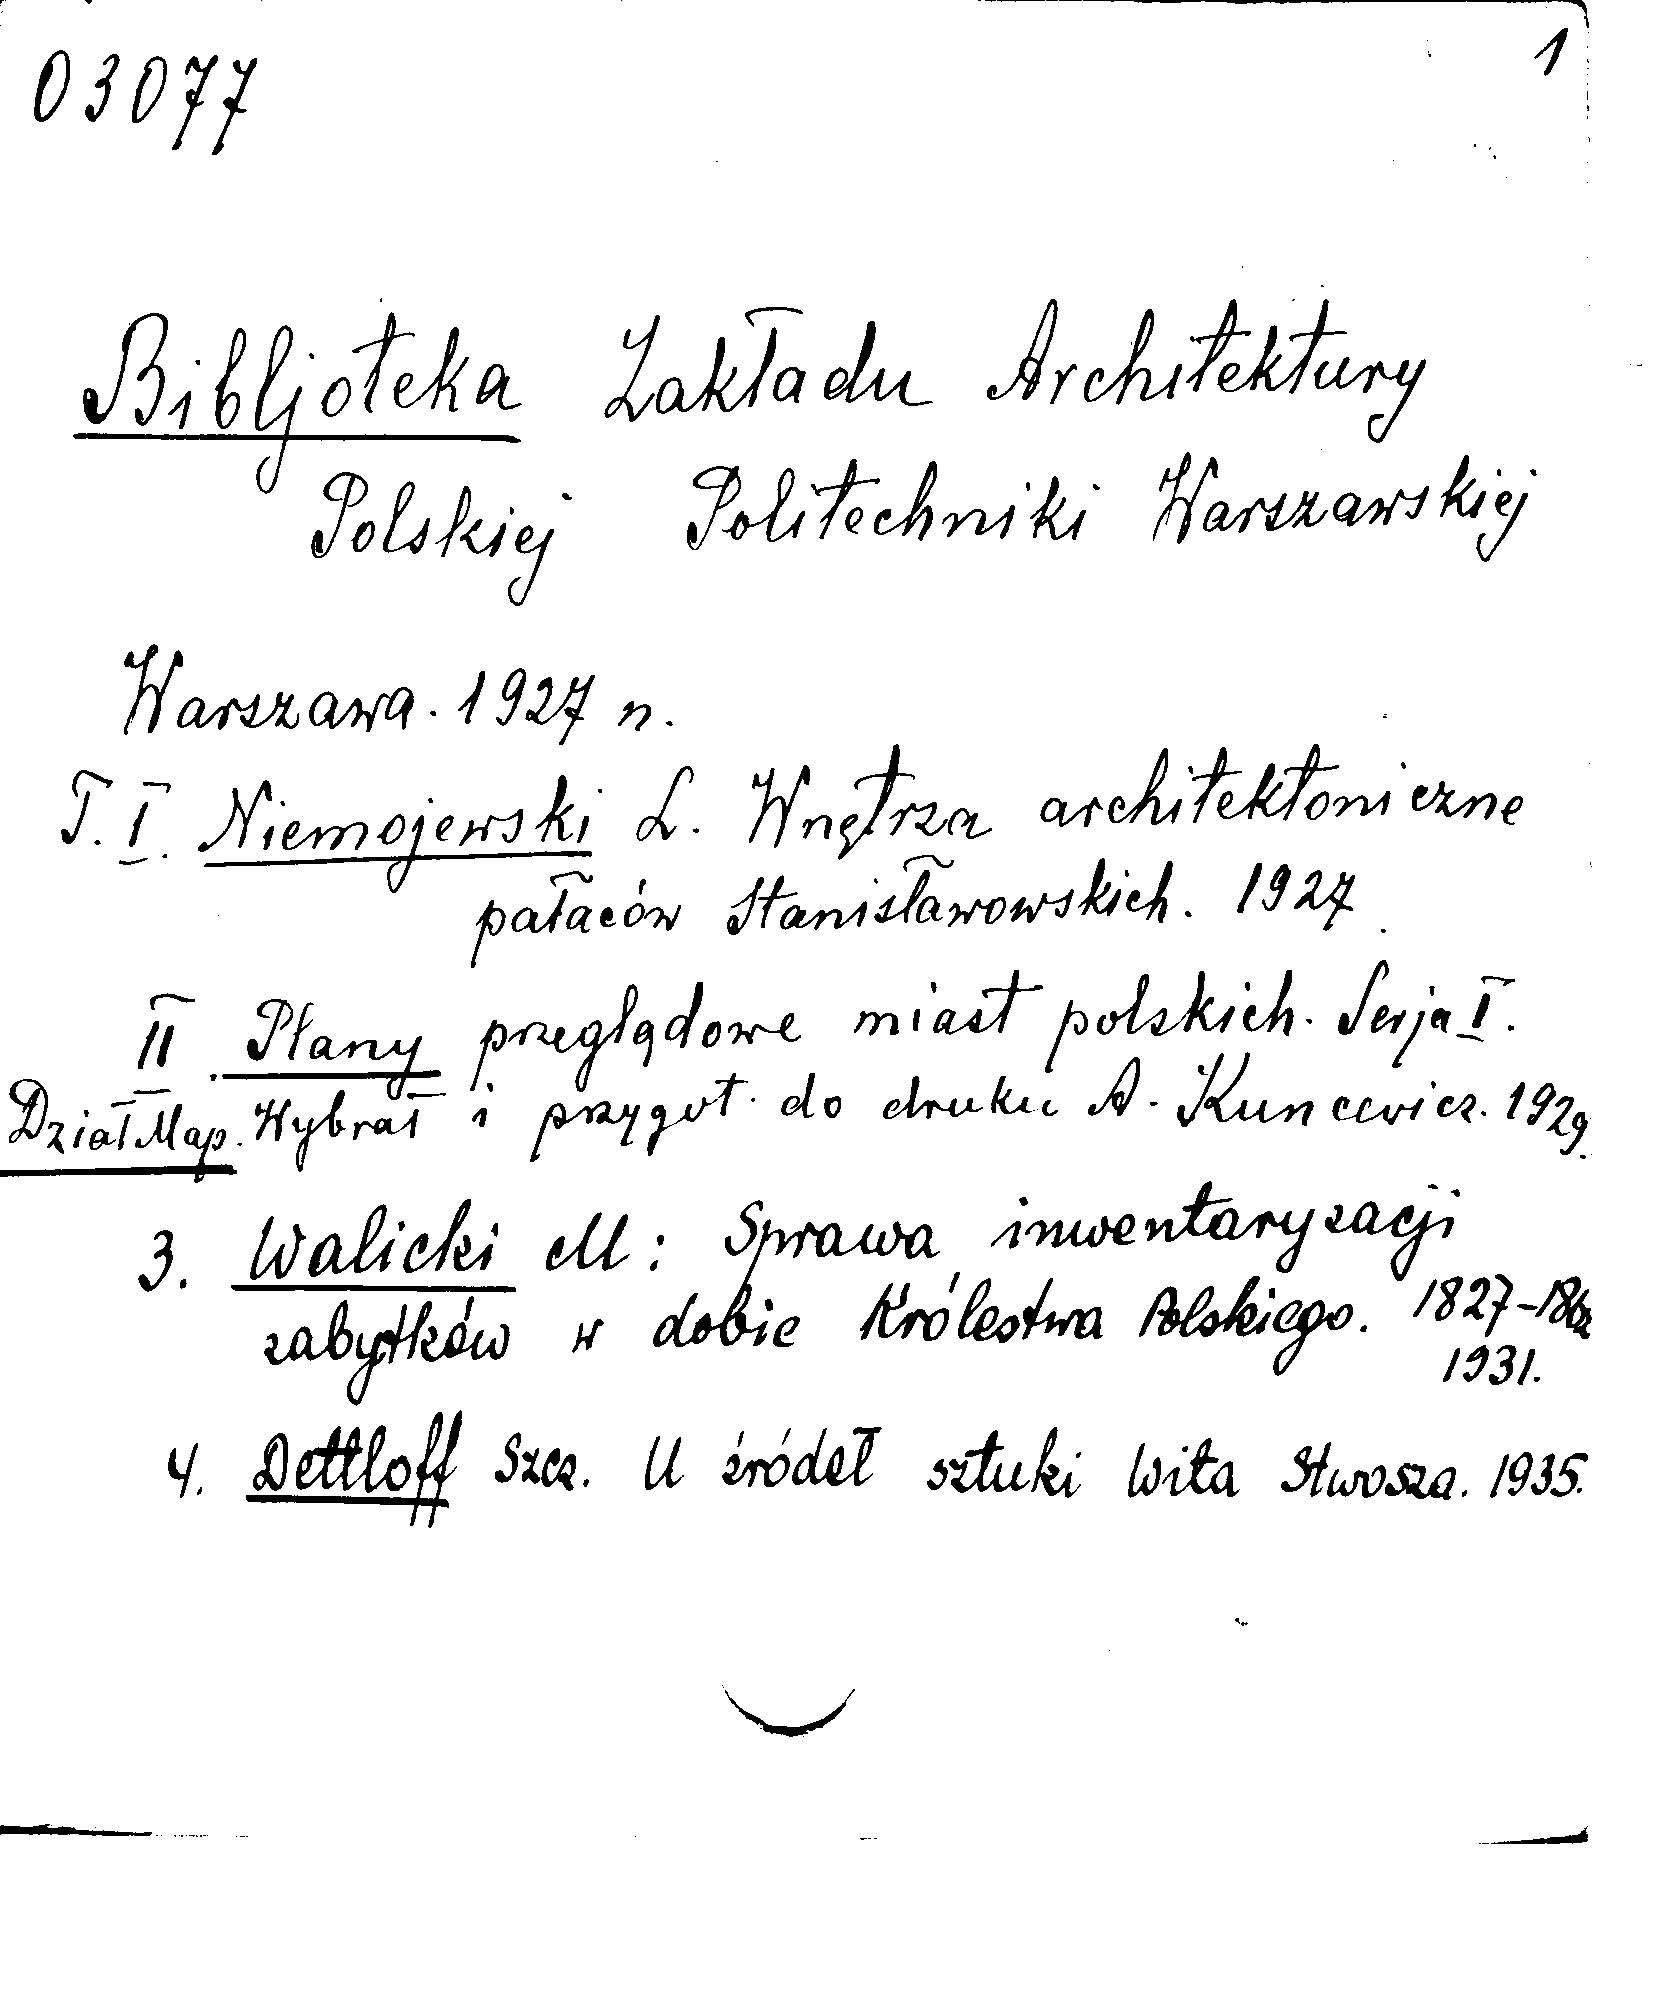 03077
1
Bibljoteka Zakładu Architektury
Polskiej Politechniki Warszawskiej
Warszawa. 1927 n.
T. I. Niemojewski L. Wnętrza architektoniczne
pałaców Stanisławowskich. 1927.
II. Plany przeglądowe miast polskich. Serja I.
Dział Map. Wybrał i przygot. do druku A. Kuncewicz. 1929.
3. Walicki M: Sprawa inwentaryzacji
zabytków w dobie Królestwa Polskiego. 1827-1862
1931.
4. Dettloff Szcz. U źródeł sztuki Wita Stwosza. 1935.